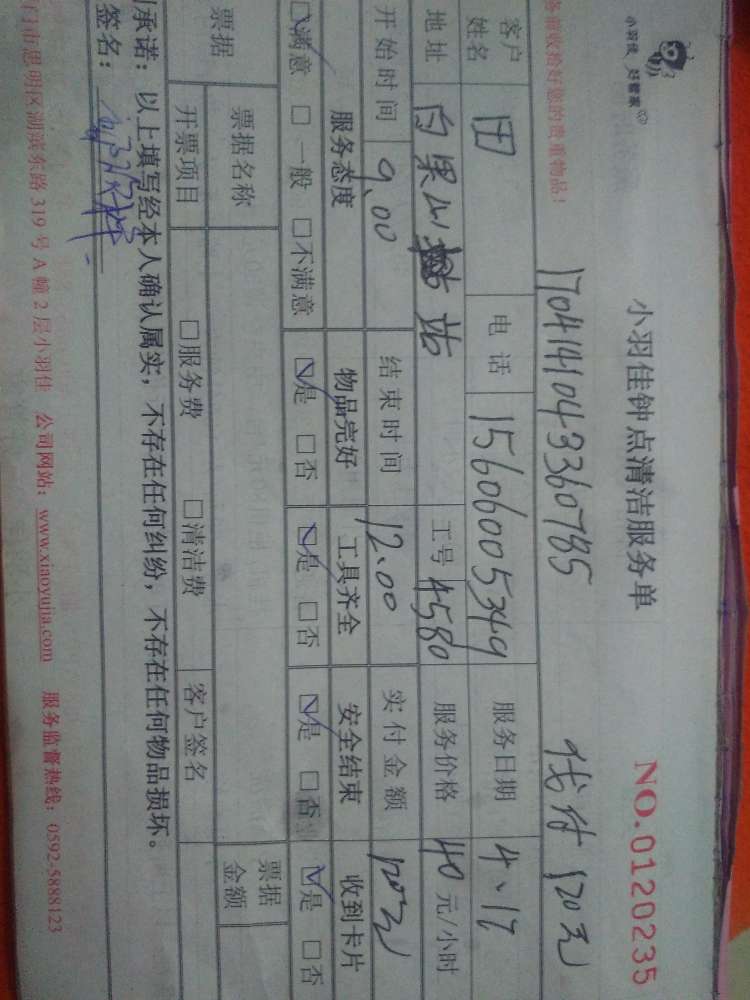 小羽佳 好管家
小羽佳钟点清洁服务单 NO.0120235
前收拾好您的贵重物品! 1704141043360785 120元
客户姓名 田 电话 15606005349 服务日期 4、17
地址 白果山 站 工号 4580 服务价格 40 元/小时
开始时间 9.00 结束时间 12.00 实付金额 120元
服务态度 物品完好 工具齐全 安全结束 收到卡片
☑满意 □一般 □不满意 ☑是 □否 ☑是 □否 ☑是 □否 ☑是 □否
票据 票据名称 票据金额
开票项目 □服务费 □清洁费 客户签名
承诺:以上填写经本人确认属实,不存在任何纠纷,不存在任何物品损坏。
签名:
门市思明区湖滨东路 319 号 A 幢 2 层小羽佳 公司网站:www.xiaoyujia.com 服务监督热线:0592-5888123